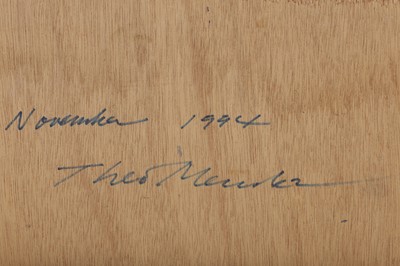 November 1994
Theo Mendez